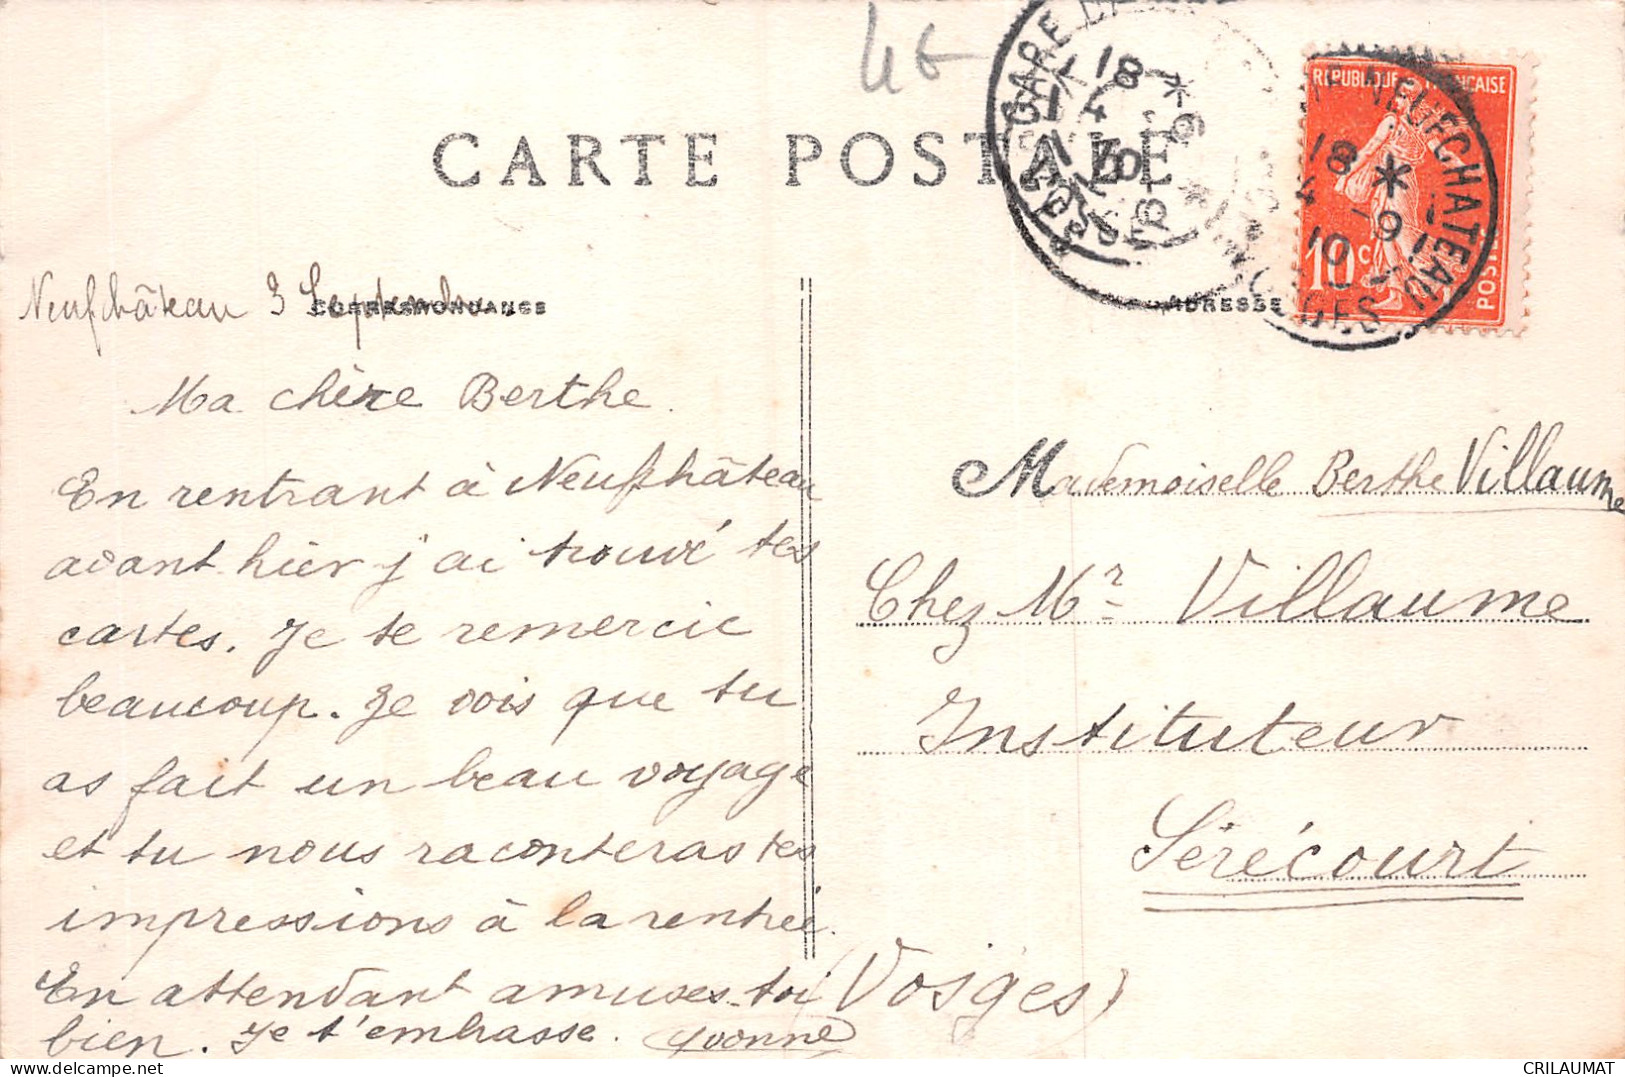 46
CARTE POSTALE
CORRESPONDANCE
ADRESSE
RÉPUBLIQUE FRANÇAISE
10c
POSTES
NEUFCHATEAU
VOSGES
18 *
4 -9
10
GARE
18 *
4 -9
10
Neufchâteau 3 Septembre
Ma chère Berthe.
En rentrant à Neufchâteau
avant hier j'ai trouvé tes
cartes. Je te remercie
beaucoup. Je vois que tu
as fait un beau voyage
et tu nous raconteras tes
impressions à la rentrée.
En attendant amuses-toi
bien. Je t'embrasse. Yvonne
Mademoiselle Berthe Villaume
Chez Mr Villaume
Instituteur
Sérécourt
(Vosges)
CRILAUMAT